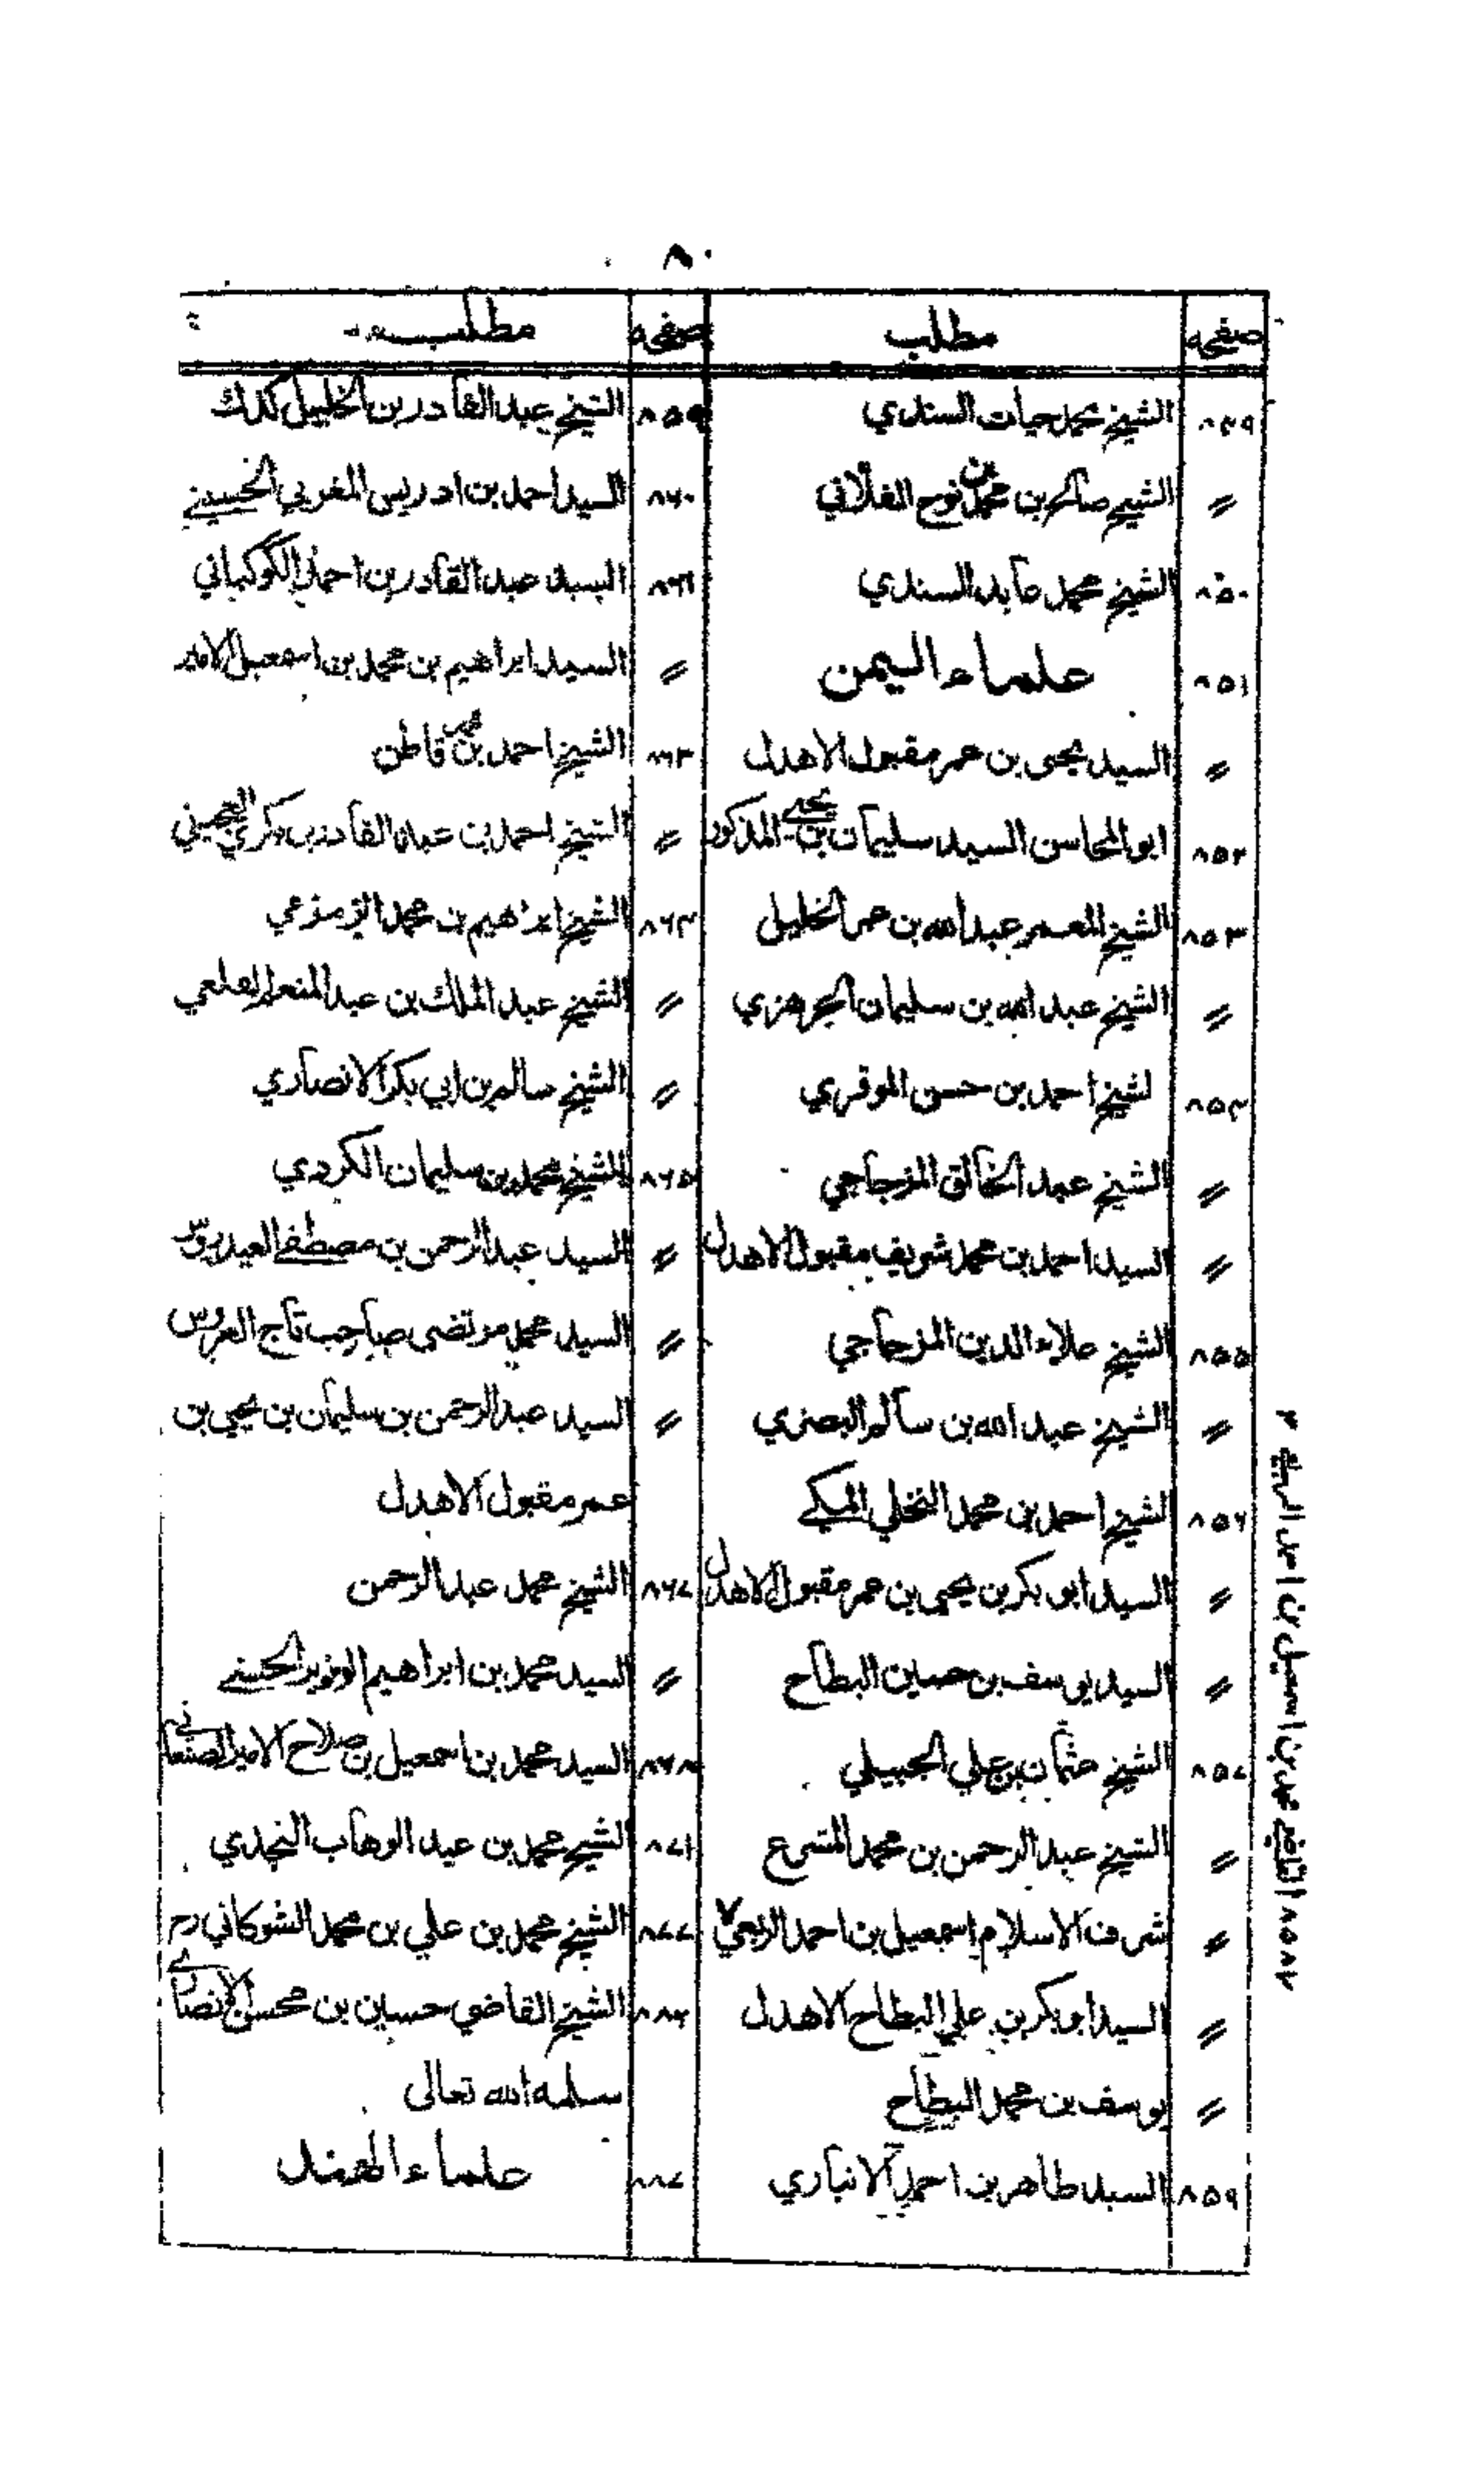 ٨٠
صفحه مطلب
٨٤٩ الشيخ محمد حيات السندي
〃 الشيخ صالح بن محمد بن نوح الفلاني
٨٥٠ الشيخ محمد عابد السندي
٨٥١ علماء اليمن
〃 السيد يحيى بن عمر مقبول الاهدل
٨٥٢ ابو المحاسن السيد سليمان بن يحيى المذكور
٨٥٣ الشيخ المعمر عبد الله بن عمر الخليل
〃 الشيخ عبد الله بن سليمان الجرهزي
٨٥٤ لشيخ احمد بن حسن الموقري
〃 الشيخ عبد الخالق المزجاجي
〃 السيد احمد بن محمد شريف مقبول الاهدل
٨٥٥ الشيخ علاء الدين المزجاجي
〃 الشيخ عبد الله بن سالم البصري
٨٥٦ الشيخ احمد بن محمد النخلي المكي
〃 السيد ابو بكر بن يحيى بن عمر مقبول الاهدل
〃 السيد يوسف بن حسين البطاح
٨٥٧ الشيخ عثمان بن علي الجبيلي
〃 الشيخ عبد الرحمن بن محمد المشرع
〃 شرف الاسلام اسمعيل بن احمد الربعي ٧
〃 السيد ابو بكر بن علي البطاح الاهدل
〃 يوسف بن محمد البطاح
٨٥٩ السيد طاهر بن احمد الانباري
صفحه مطلب
٨٥٩ الشيخ عبد القادر بن الخليل كدك
٨٦٠ السيد احمد بن ادريس المغربي الحسيني
٨٦١ السيد عبد القادر بن احمد الكوكباني
〃 السيد ابراهيم بن محمد بن اسمعيل الامير
٨٦٣ الشيخ احمد بن محمد قاطن
〃 الشيخ احمد بن عبد القادر بن بكري العجيمي
٨٦٤ الشيخ ابراهيم بن محمد الزمزمي
〃 الشيخ عبد الملك بن عبد المنعم القلعي
〃 الشيخ سالم بن ابي بكر الانصاري
٨٦٥ الشيخ محمد بن سليمان الكردي
〃 السيد عبد الرحمن بن مصطفى العيدروس
〃 السيد محمد مرتضى صاحب تاج العروس
〃 السيد عبد الرحمن بن سليمان بن يحيى بن
عمر مقبول الاهدل
٨٦٧ الشيخ محمد عبد الرحمن
〃 السيد محمد بن ابراهيم الوزير الحسني
٨٦٨ السيد محمد بن اسمعيل بن صلاح الامير الصنعاني
٨٧١ الشيخ محمد بن عبد الوهاب النجدي
٨٧٧ الشيخ محمد بن علي بن محمد الشوكاني رح
٨٨٣ الشيخ القاضي حسين بن محسن الانصاري
سلمه الله تعالى
٨٨٧ علماء الهند